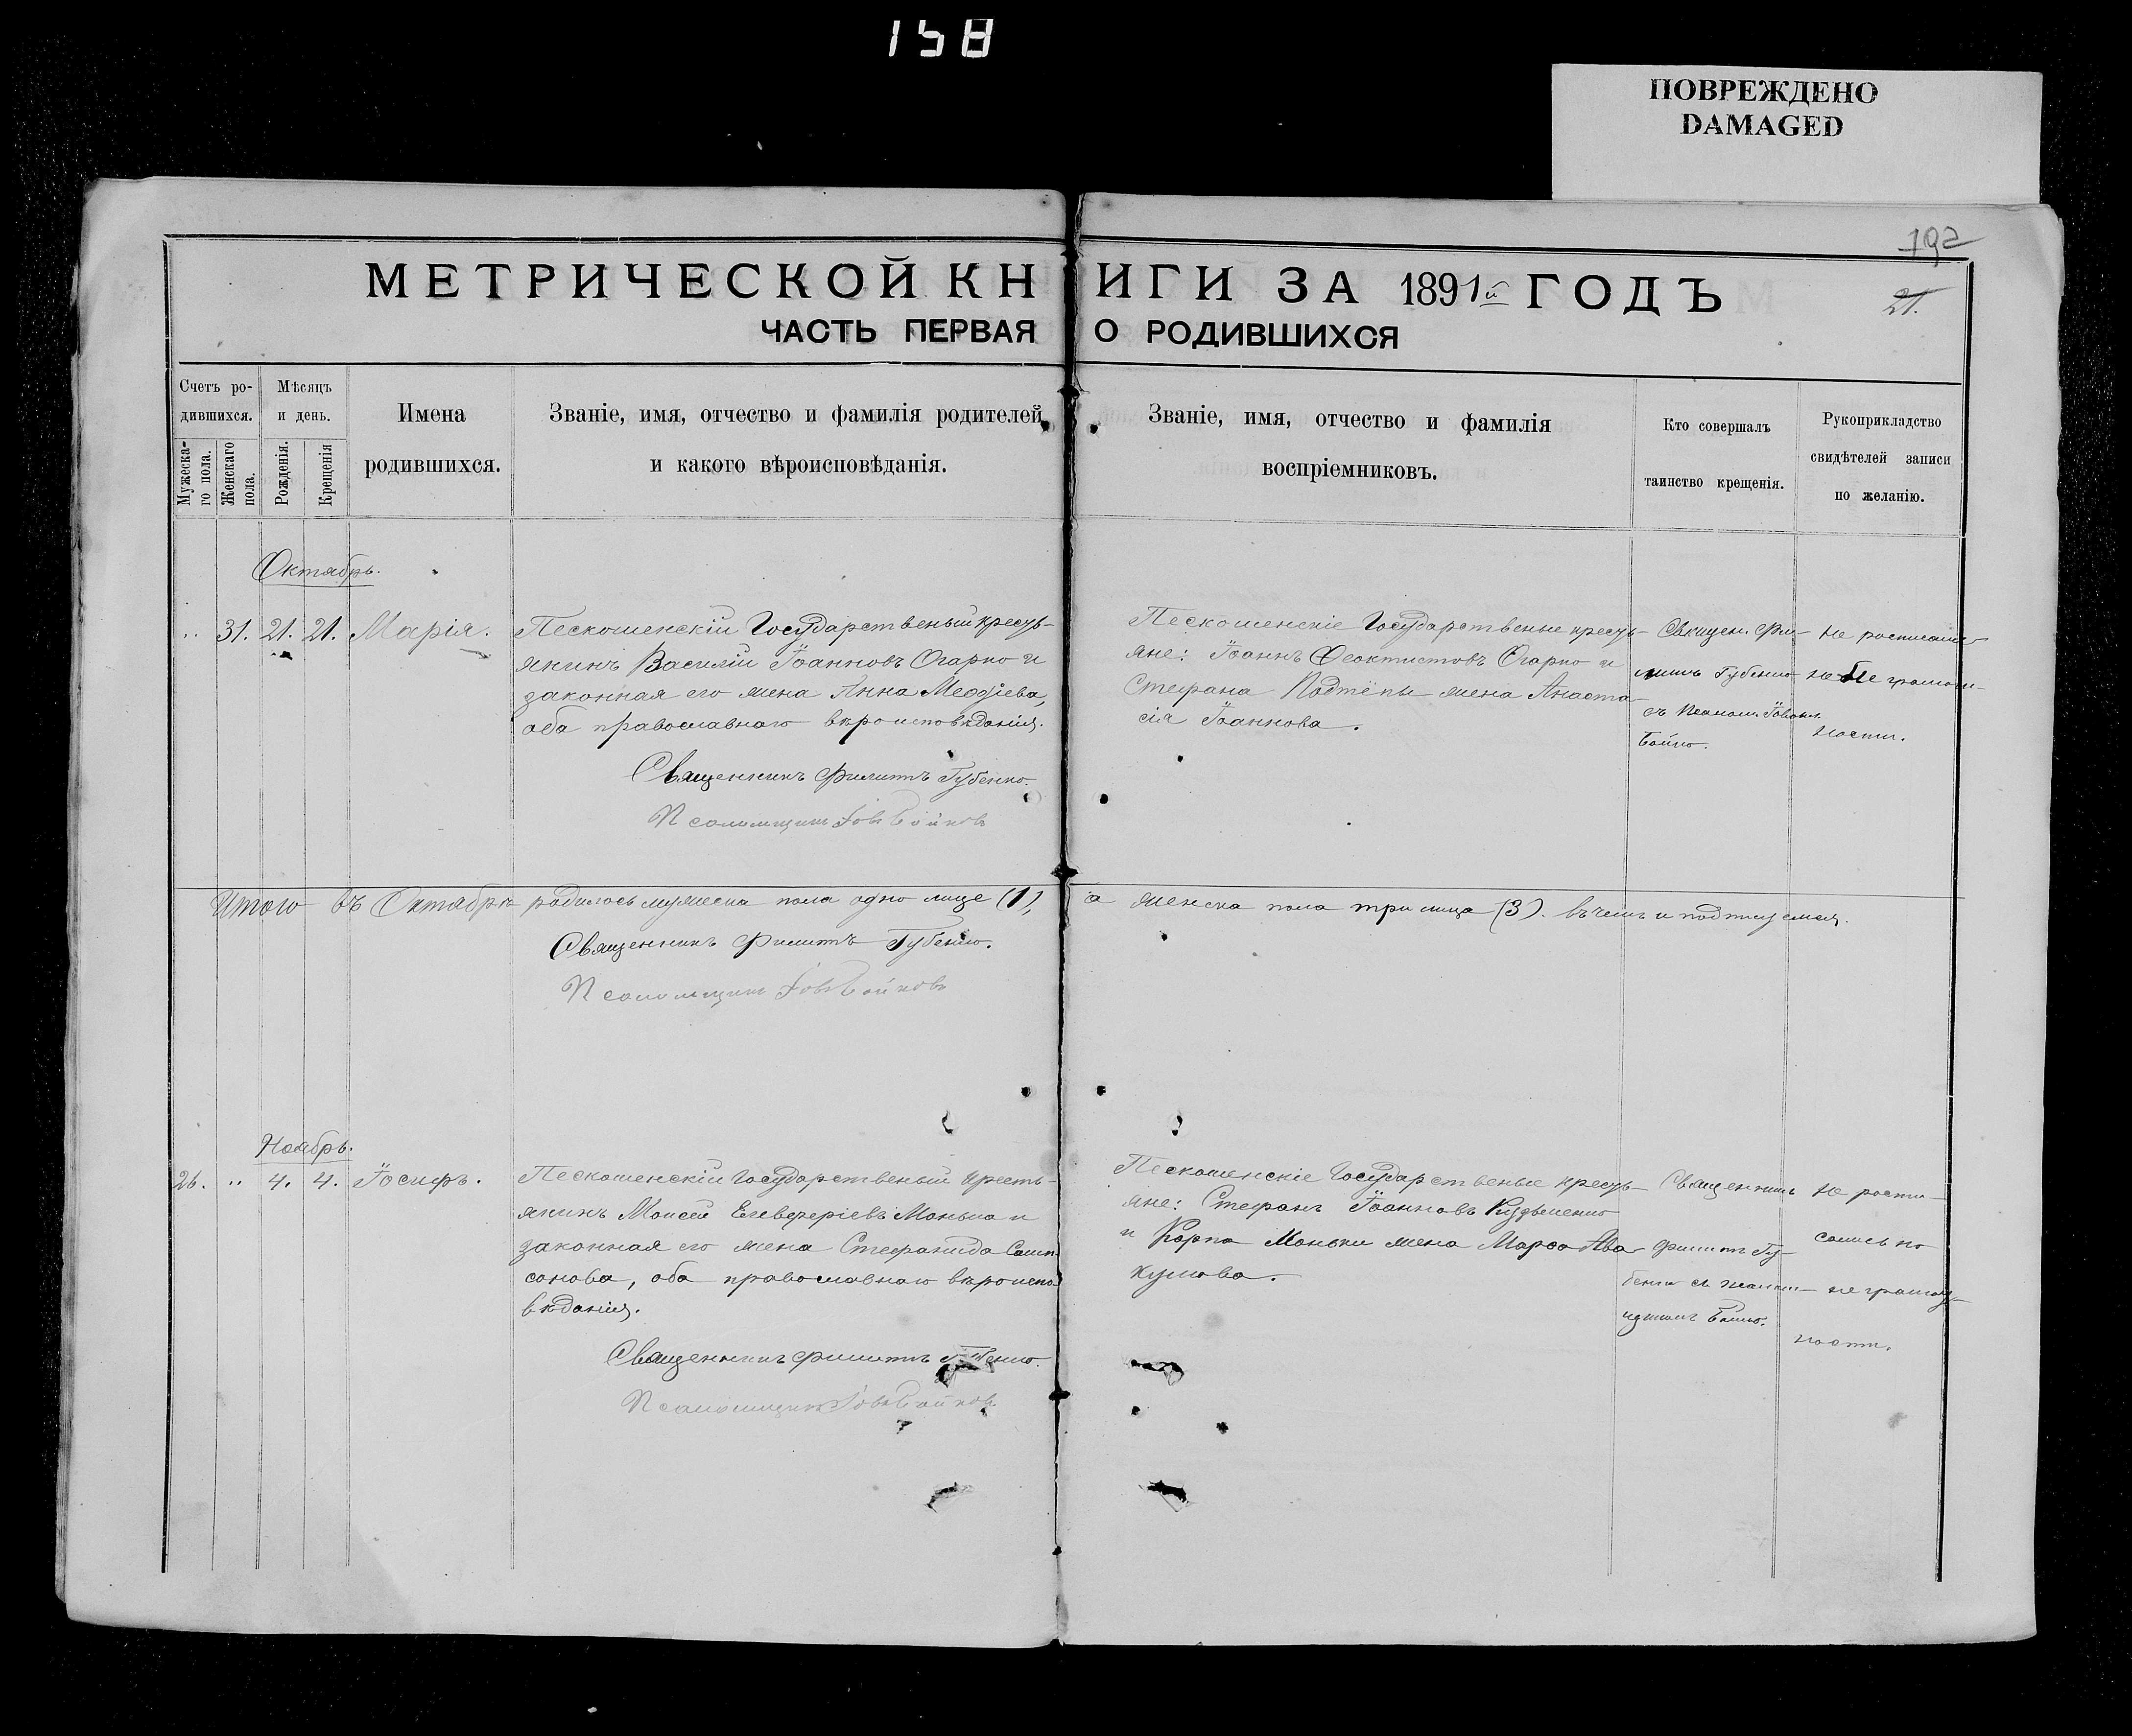 158
ПОВРЕЖДЕНО
DAMAGED
192
21.
МЕТРИЧЕСКОЙ КНИГИ ЗА 1891й ГОДЪ
ЧАСТЬ ПЕРВАЯ О РОДИВШИХСЯ
Счетъ ро-
дившихся.
Мужеска-
го пола.
Женскаго
пола.
Мѣсяцъ
и день.
Рожденія.
Крещенія
Имена
родившихся.
Званіе, имя, отчество и фамилія родителей,
и какого вѣроисповѣданія.
Званіе, имя, отчество и фамилія
воспріемниковъ.
Кто совершалъ
таинство крещенія.
Рукоприкладство
свидѣтелей записи
по желанію.
Октябрь.
" 31. 21. 21. Марія.
Пескошенскій Государственый кресть-
янинъ Василій Іоанновъ Огарко и
законная его жена Анна
оба православнаго вѣроисповѣданія.
Священникъ Филиппъ Губенко.
Псаломщикъ Іовъ Бойковъ
Пескошенскіе Государственые кресть-
яне: Іоаннъ Ѳеоктистовъ Огарко и
Стефана жена Анаста-
сія Іоаннова.
Священ. Фи-
липпъ Губенко
съ Псалом. Іовомъ
Бойко.
не росписались
по не грамот-
ности.
Итого въ Октябрѣ родилось мужеска пола одно лице (1), а женска пола три лица (3). въ чемъ и подписуемся.
Священникъ Филиппъ Губенко.
Псаломщикъ Іовъ Бойковъ
Ноябрь.
26. " 4. 4. Іосифъ.
Пескошенскій Государственый кресть-
янинъ Моисей Елевѳеріевъ Монько и
законная его жена Стефанида Самп-
сонова, оба православнаго вѣроиспо-
вѣданія.
Священникъ Филиппъ Губенко.
Псаломщикъ Іовъ Бойковъ
Пескошенскіе Государственые кресть-
яне: Стефанъ Іоанновъ
и Карпа Моньки жена Марѳа Ава-
кумова.
Священникъ
Филиппъ Гу-
бенко съ
Бойко.
не роспи-
сались по
не грамот-
ности.